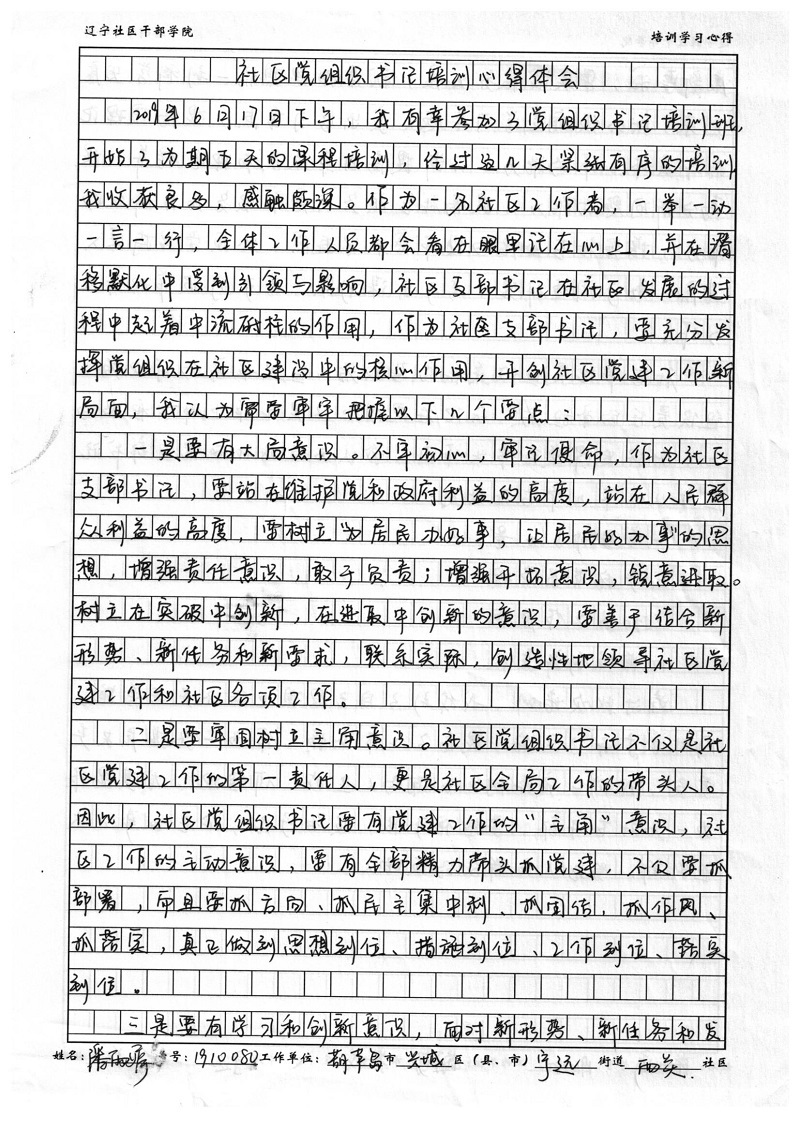 辽宁社区干部学院 培训学习心得
社区党组织书记培训心得体会
2019年6月17日下午，我有幸参加了党组织书记培训班，
开始了为期五天的课程培训，经过这几天紧张有序的培训，
我收获良多，感触颇深。作为一名社区工作者，一举一动
一言一行，全体工作人员都会看在眼里记在心上，并在潜
移默化中受到引领与影响，社区支部书记在社区发展的过
程中起着中流砥柱的作用，作为社区支部书记，要充分发
挥党组织在社区建设中的核心作用，开创社区党建工作新
局面，我认为需要牢牢把握以下几个要点：
一是要有大局意识。不忘初心，牢记使命，作为社区
支部书记，要站在维护党和政府利益的高度，站在人民群
众利益的高度，要树立“为居民办好事，让居民好办事”的思
想，增强责任意识，敢于负责；增强开拓意识，锐意进取。
树立在突破中创新，在进取中创新的意识，要善于结合新
形势、新任务和新要求，联系实际，创造性地领导社区党
建工作和社区各项工作。
二是要牢固树立主角意识。社区党组织书记不仅是社
区党建工作的第一责任人，更是社区全局工作的带头人。
因此，社区党组织书记要有党建工作的“主角”意识，社
区工作的主动意识，要有全部精力带头抓党建，不仅要抓
部署，而且要抓方向、抓民主集中制、抓团结，抓作风、
抓落实，真正做到思想到位、措施到位、工作到位、落实
到位。
三是要有学习和创新意识，面对新形势、新任务和发
姓名： 号：1910080 工作单位：葫芦岛市 兴城 区（县、市）宁远 街道 社区